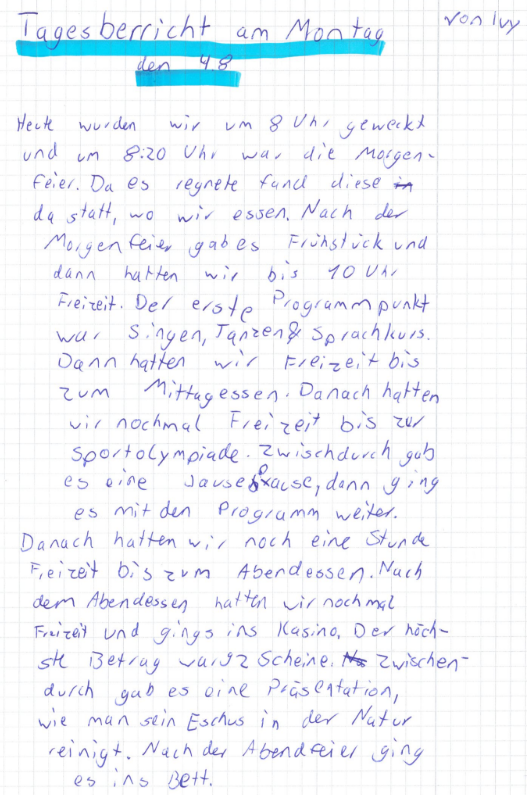 Tagesberricht am Montag
von Ivy
den 4.8
Heute wurden wir um 8 Uhr geweckt
und um 8:20 Uhr war die Morgen-
feier. Da es regnete fand diese
da statt, wo wir essen. Nach der
Morgenfeier gab es Frühstück und
dann hatten wir bis 10 Uhr
Freizeit. Der erste Programmpunkt
war Singen, Tanzen & Sprachkurs.
Dann hatten wir Freizeit bis
zum Mittagessen. Danach hatten
wir nochmal Freizeit bis zur
Sportolympiade. Zwischdurch gab
es eine Jausepause, dann ging
es mit den Programm weiter.
Danach hatten wir noch eine Stunde
Freizeit bis zum Abendessen. Nach
dem Abendessen hatten wir nochmal
Freizeit und gings ins Kasino. Der höch-
ste Betrag war 92 Scheine. Zwischen-
durch gab es eine Präsentation,
wie man sein in der Natur
reinigt. Nach der Abendfeier ging
es ins Bett.